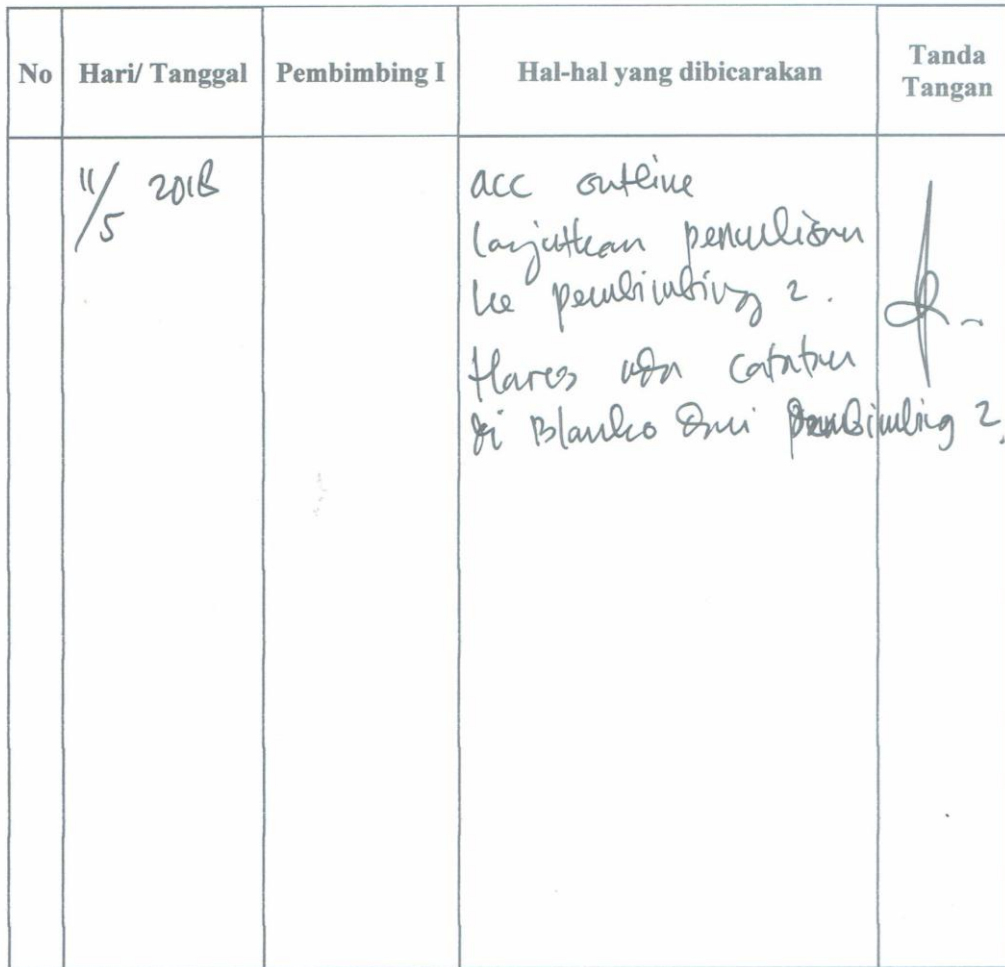 No Hari/ Tanggal Pembimbing I Hal-hal yang dibicarakan Tanda Tangan
11/5 2018
acc outline
lanjutkan penulisan
ke pembimbing 2.
Harus ada catatan
di Blanko dari pembimbing 2.